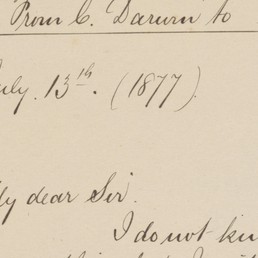 From C. Darwin to
July. 13th. (1877).
My dear Sir.
I do not kn